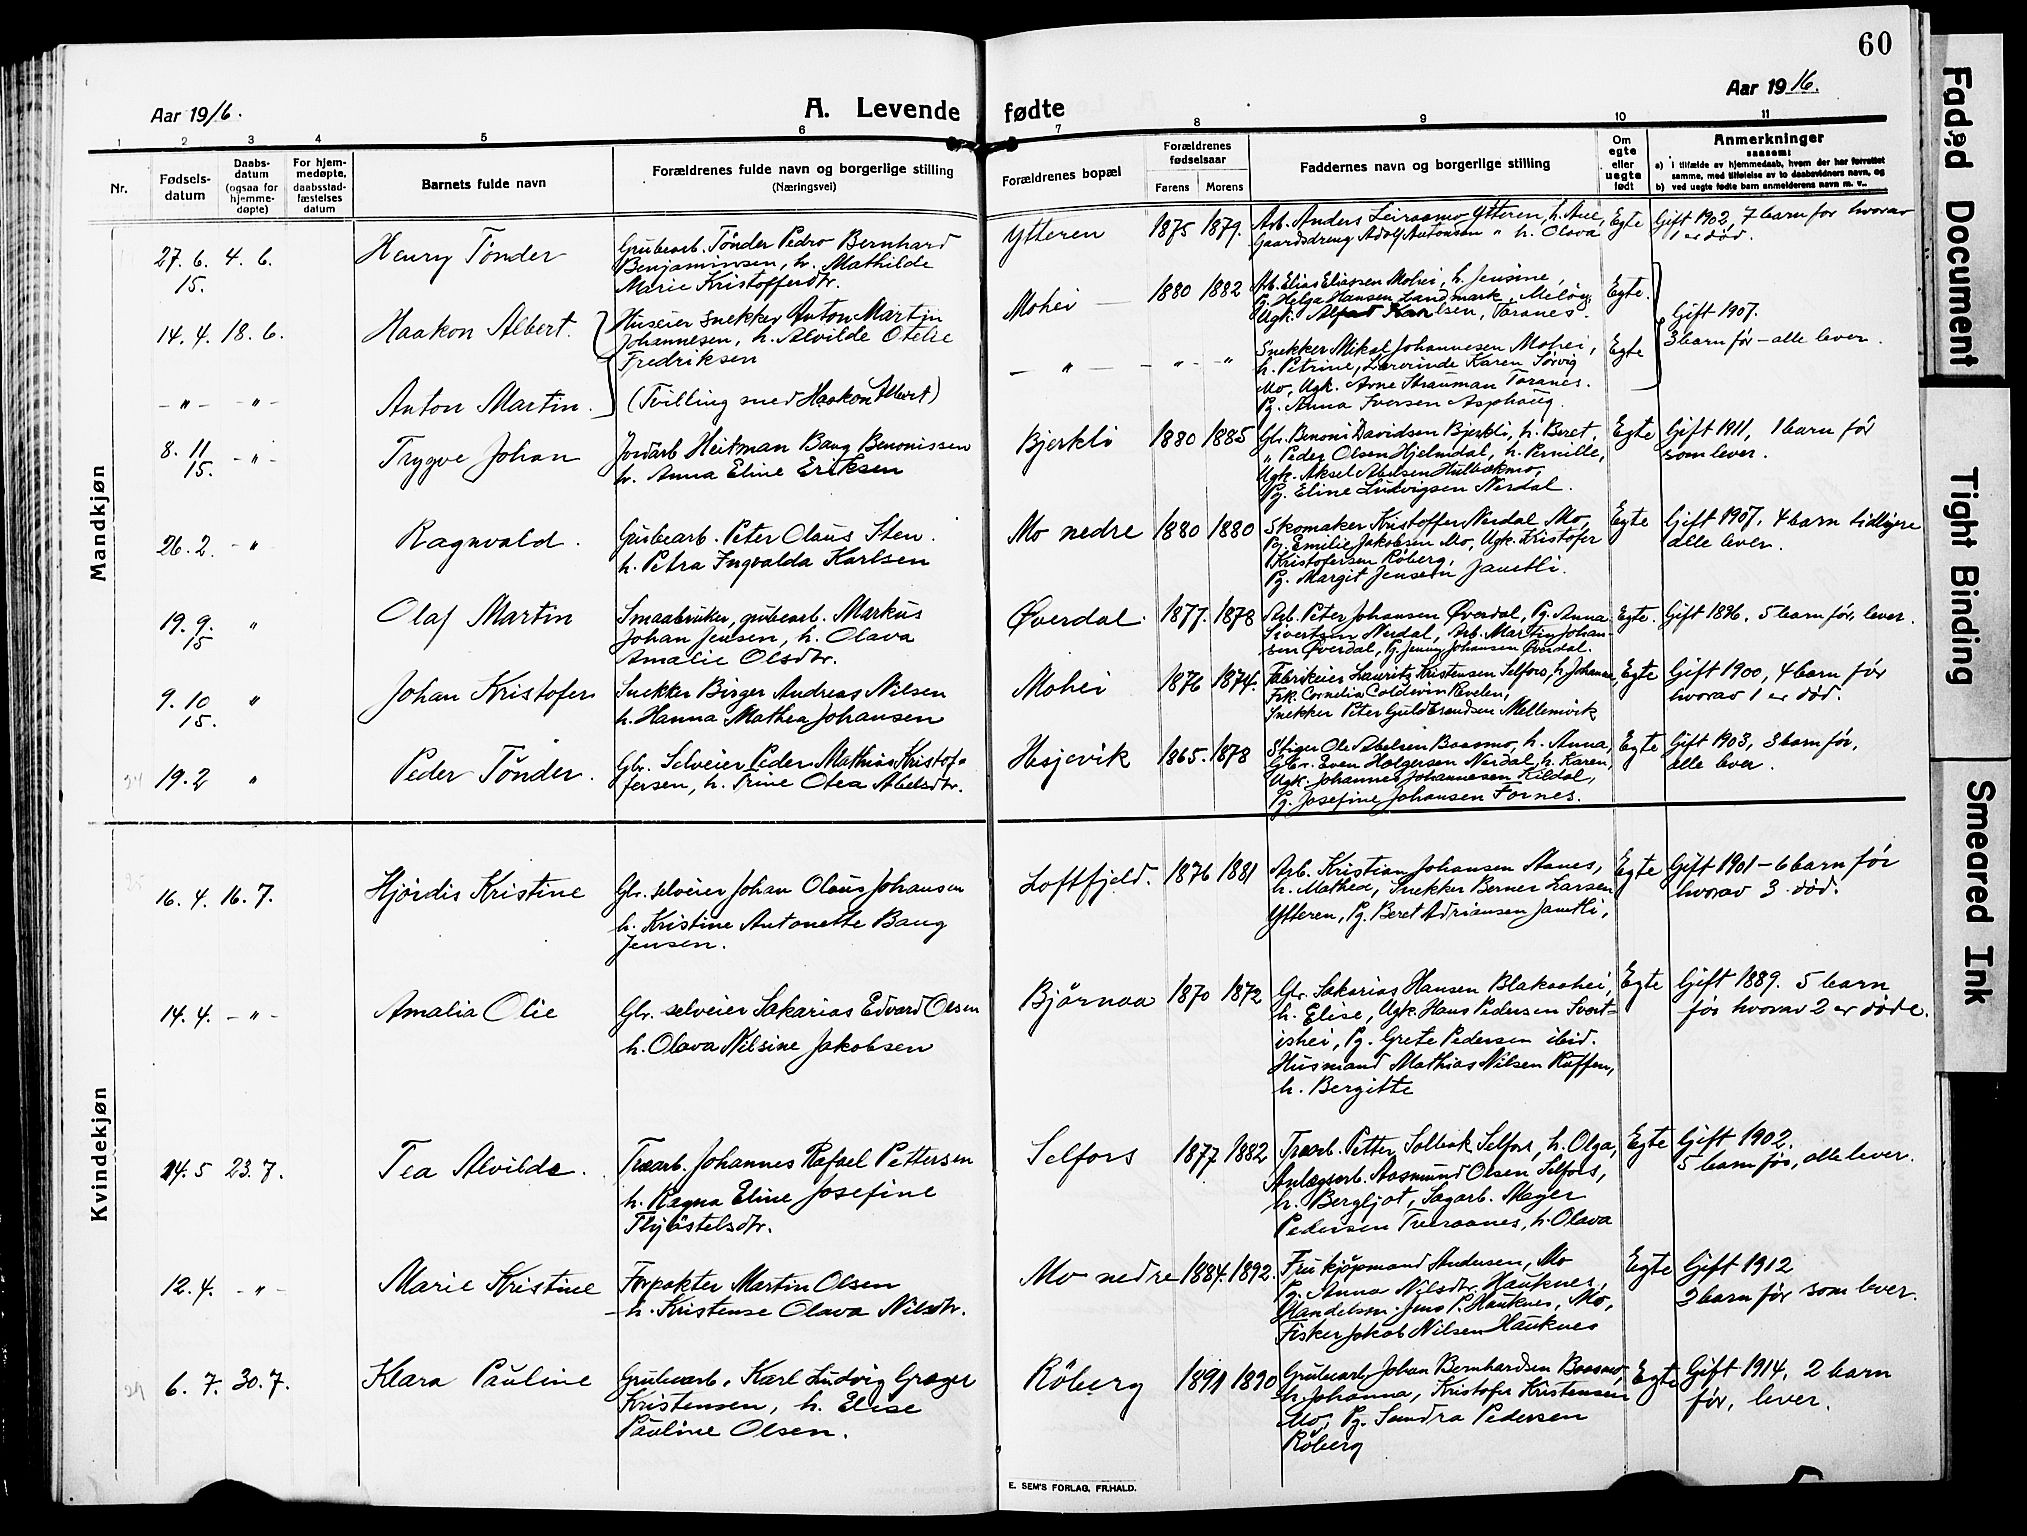 60
Aar 1916.
A. Levende fødte
Aar 1916.
1 2 3 4 5 6 7 8 9 10 11
Nr.
Fødsels-
datum
Daabs-
datum
(ogsaa for
hjemme-
døpte)
For hjem-
medøpte,
daabsstad-
fæstelses
datum
Barnets fulde navn
Forældrenes fulde navn og borgerlige stilling
(Næringsvei)
Forældrenes bopæl
Forældrenes
fødselsaar
Farens Morens
Faddernes navn og borgerlige stilling
Om
egte
eller
uegte
født
Anmerkninger
saasom:
a) i tilfælde av hjemmedaab, hvem der har forrettet
samme, med tilføielse av to daabsvidners navn, og
b) ved uegte fødte barn anmelderens navn m. v..
Mandkjøn
27. 6. 4. 6.
15.
Henry Tönder
Grubearb. Tönder Pedro Bernhard
Benjaminsen, h. Mathilde
Marie Kristoffersdtr.
Ytteren
1875 1879.
Arb. Anders Leiraamo Ytteren, h. Ane,
Gaardsdreng Adolf Antonsen " h. Olava
Egte
Gift 1902, 7 barn før hvorav
1 er død.
14. 4. 18. 6.
Haakon Albert.
Huseier snekker Anton Martin
Johannesen, h. Alvilde Otelie
Fredriksen
Mohei
1880 1882
Arb. Elias Eliassen Mohei, h. Jensine,
Pg. Helga Hansen Landmark, Meløy.
Ugk. Karlsen, Toranes.
Egte.
Gift 1907.
3 barn før – alle lever.
– " – – " –
Anton Martin.
(Tvilling med Haakon Albert)
– " – – " – "
Snekker Mikal Johannesen Mohei,
h. Petrine, Lærerinde Karen Sørvig
Mo, Ugk. Arne Strauman Toranes.
Pg. Anna Iversen Asphaug.
Egte
8. 11 – " –
15.
Trygve Johan
Jordarb Heitman Baug Benonissen
h. Anna Eline Eriksen
Bjerkli
1880 1885
Gbr. Benoni Davidsen Bjerkli, h. Beret,
" Peder Olsen Hjelmdal, h. Pernille,
Ugk. Aksel Abelsen Hulbekmo,
Pg. Eline Ludvigsen Nerdal.
Egte
Gift 1911, 1 barn før
som lever.
26. 2. – " –
Ragnvald.
Grubearb. Peter Olaus Sten.
h. Petra Ingvalda Karlsen
Mo nedre
1880 1880
Skomaker Kristoffer Nerdal Mo,
Pg. Emilie Jakobsen Mo, Ugk. Kristofer
Kristofersen Röberg,
Pg. Margit Jensen Jamtli.
Egte
Gift 1907, 4 barn tidligere
alle lever.
19. 9. "
15
Olaf Martin
Smaabruker, grubearb. Markus
Johan Jensen, h. Olava
Amalie Olsdtr.
Øverdal.
1877. 1878
Arb. Peter Johansen Øverdal, Pg. Anna
Sivertsen Nerdal, Arb. Martin Johan-
sen Øverdal, Pg. Jenny Johansen Øverdal.
Egte.
Gift 1896, 5 barn før, lever.
9. 10 "
15.
Johan Kristofer
Snekker Birger Andreas Nilsen
h. Hanna Mathea Johansen
Mohei
1876 1874.
Fabrikeier Lauritz Kristensen Selfors, h. Johanna,
Frk. Cornelia Coldevin Revelen,
Snekker Peter Guldbrandsen Mellemvik
Egte
Gift 1900, 4 barn før
hvorav 1 er død.
24
19. 2 "
Peder Tönder.
Gbr. Selveier Peder Mathias Kristof-
fersen, h. Trine Olea Abelsdtr.
Hesjevik
1865. 1878
Stiger Ole Abelsen Baasmo, h. Anna,
Gbr. Even Holgersen Nerdal, h. Karen,
Ugk. Johannes Johannesen Kildal,
Pg. Josefine Johansen Fornes.
Egte
Gift 1903, 3 barn før,
alle lever.
Kvindekjøn
25
16. 4. 16. 7.
Hjördis Kristine
Gbr. selveier Johan Olaus Johansen
h. Kristine Antonette Baug
Jensen.
Loftfjeld.
1876 1881
Arb. Kristian Johansen Aanes,
h. Mathea, Snekker Berner Larsen
Ytteren, Pg. Beret Adriansen Jamtli,
Egte
Gift 1901 – 6 barn før
hvorav 3 død.
14. 4. – " –
Amalia Olie
Gbr. selveier Sakarias Edvard Olsen
h. Olava Nilsine Jakobsen
Björnaa
1870 1872
Gbr. Sakarias Hansen Blakaahei,
h. Elise, Ugk. Hans Pedersen Svart-
ishei, Pg. Grete Pedersen ibid.
Husmand Mathias Nilsen Raffen,
h. Bergitte
Egte
Gift 1889. 5 barn
før hvorav 2 er døde.
14. 5 23. 7.
Tea Alvilde.
Træarb. Johannes Rafael Pettersen
h. Ragna Eline Josefine
Thjöstelsdtr.
Selfors
1877 1882
Træarb. Petter Solbak Selfors, h. Olga,
Anlægsarb. Aasmund Olsen Selfors,
h. Bergljot, Sagarb. Mayer
Pedersen Tveraanes, h. Olava
Egte
Gift 1902.
5 barn før, alle lever.
12. 4. – " –
Marie Kristine
Forpakter Martin Olsen
h. Kristense Olava Nilsdtr.
Mo nedre
1884. 1892.
Fru kjøpmand Andersen, Mo
Pg. Anna Nilsdtr. Hauknes,
Handelsm. Jens P. Hauknes, Mo,
Fisker Jakob Nilsen Hauknes
Egte
Gift 1912
2 barn før som lever.
29
6. 7. 30. 7.
Klara Pauline
Grubearb. Karl Ludvig Græger
Kristensen, h. Elise
Pauline Olsen.
Röberg
1891 1890
Grubearb. Johan Bernhardsen Baasmo,
h. Johanna, Kristofer Kristensen
Mo, Pg. Sandra Pedersen
Röberg
Egte
Gift 1914, 2 barn
før, lever.
E. SEM'S FORLAG, FR.HALD.
Faded Document
Tight Binding
Smeared Ink